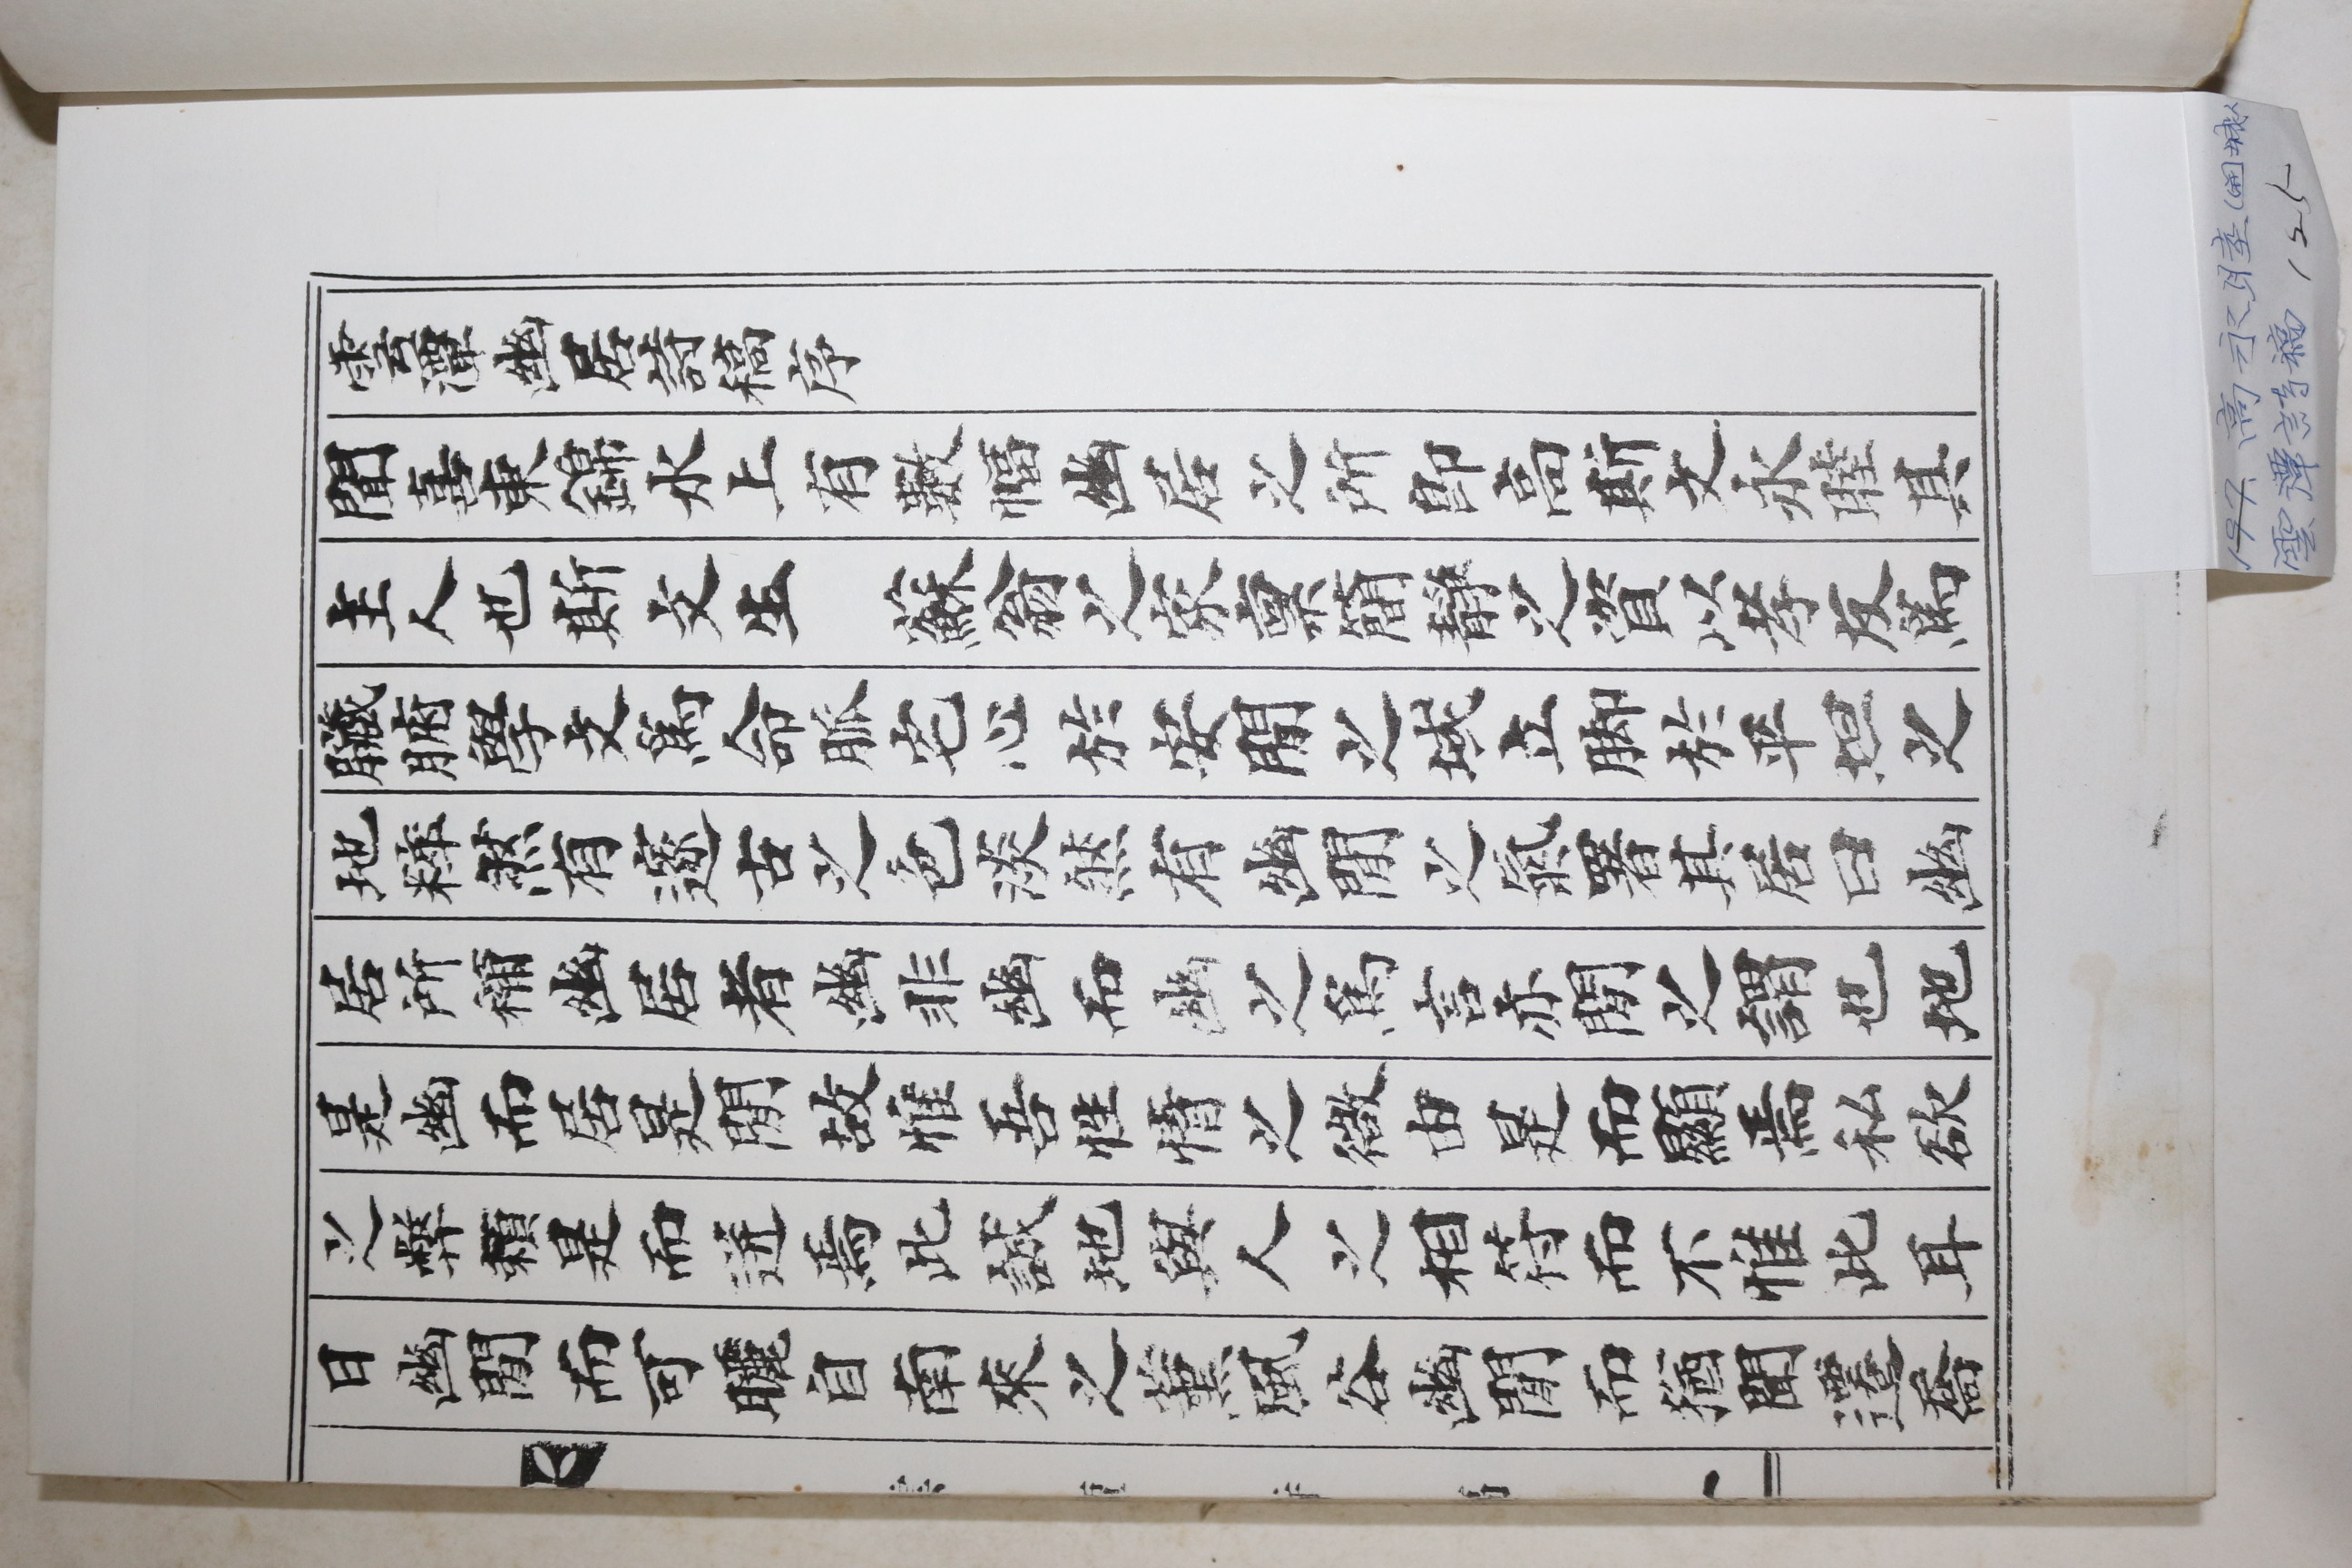 雲潭幽居詩稿序
聞喜東錦水上有數幅幽居之所即高斯文永睦其
主人也斯文生　蘇翁之家禀簡靜之資以孝友爲
臟腑學文爲命脈宅心於安閒之域立脚於平坦之
地粹然有邃古之色淡然有幽閒之氣署其居曰幽
居所稱幽居者幽非幽而幽之爲言亦閒之謂也地
是幽而居是閒故惟吾性情之微由是而顯焉私欲
之弊賴是而迸焉此誠地與人之相符而不惟此耳
日幽閒而可曬自南來之薰風谷幽閒而猶聞遷喬
197. 高永睦 (開城人
雲潭詩稿 125